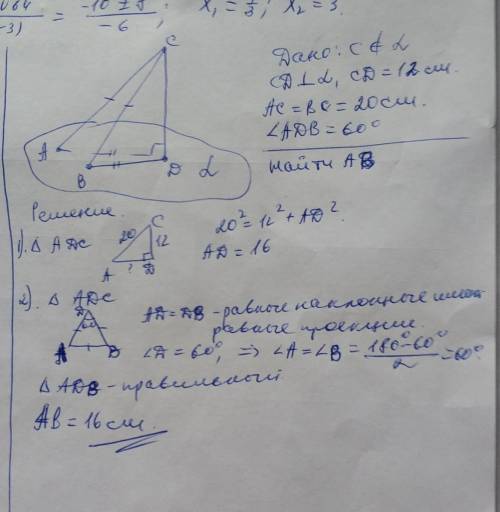 = -10 ± 8 / -6 ; x₁ = 1/3 ; x₂ = 3.
C
A
B
D
α
Дано: C ∉ α
CD ⊥ α, CD = 12 см.
AC = BC = 20 см.
∠ADB = 60°
Найти AB
Решение.
1). Δ ADC
C
20
12
A
?
D
20² = 12² + AD².
AD = 16
2). Δ ADC
D
60°
A
B
AD = DB - равные наклонные имеют
равные проекции.
∠D = 60°, => ∠A = ∠B = 180° - 60° / 2 = 60°
Δ ADB - правильный
AB = 16 см.